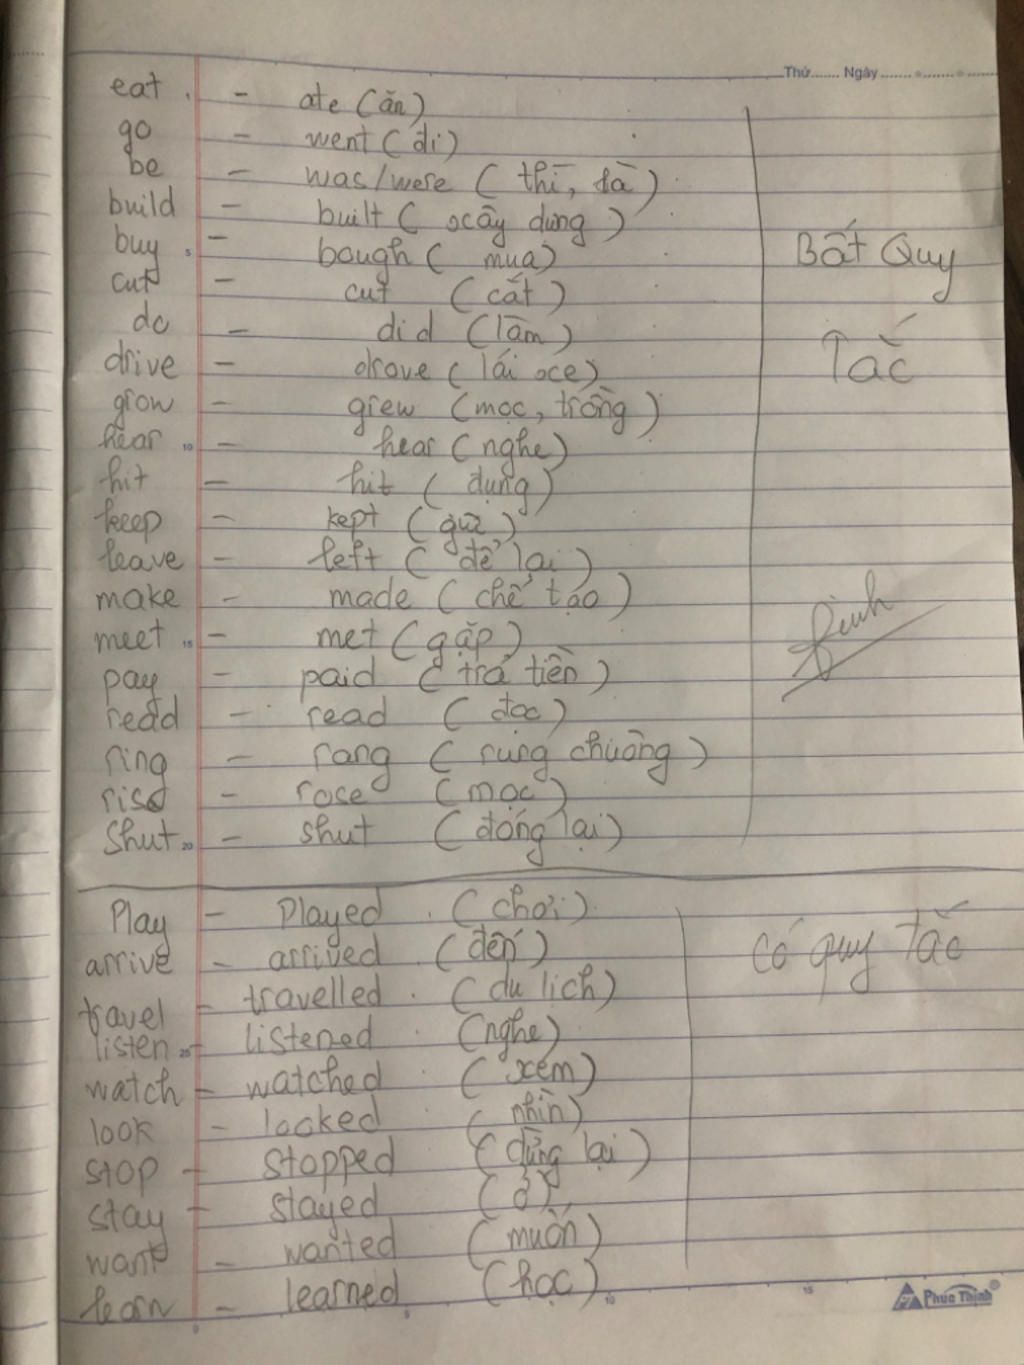 Thứ....... Ngày.......
eat - ate (ăn)
go - went (đi)
be - was/were (thì, là)
build - built (xây dưng)
buy 5 - bough (mua)
cut - cut (cắt)
do - did (làm)
drive - drove (lái xe)
grow - grew (mọc, trồng)
hear 10 - hear (nghe)
hit - hit (dụng)
keep - kept (giữ)
leave - left (để lại)
make - made (chế tạo)
meet 15 - met (gặp)
pay - paid (trả tiền)
read - read (đọc)
ring - rang (rung chuông)
rise - rose (mọc)
Shut 20 - shut (đóng lại)
Bất Quy
Tắc
Play - Played (chơi)
arrive - arrived (đến)
travel - travelled (du lịch)
listen 25 - listened (nghe)
watch - watched (xem)
look - looked (nhìn)
stop - stopped (dừng lại)
stay - stayed (ở)
want - wanted (muốn)
learn - learned (học)
Có quy tắc
0 5 10 15
Phúc Thịnh